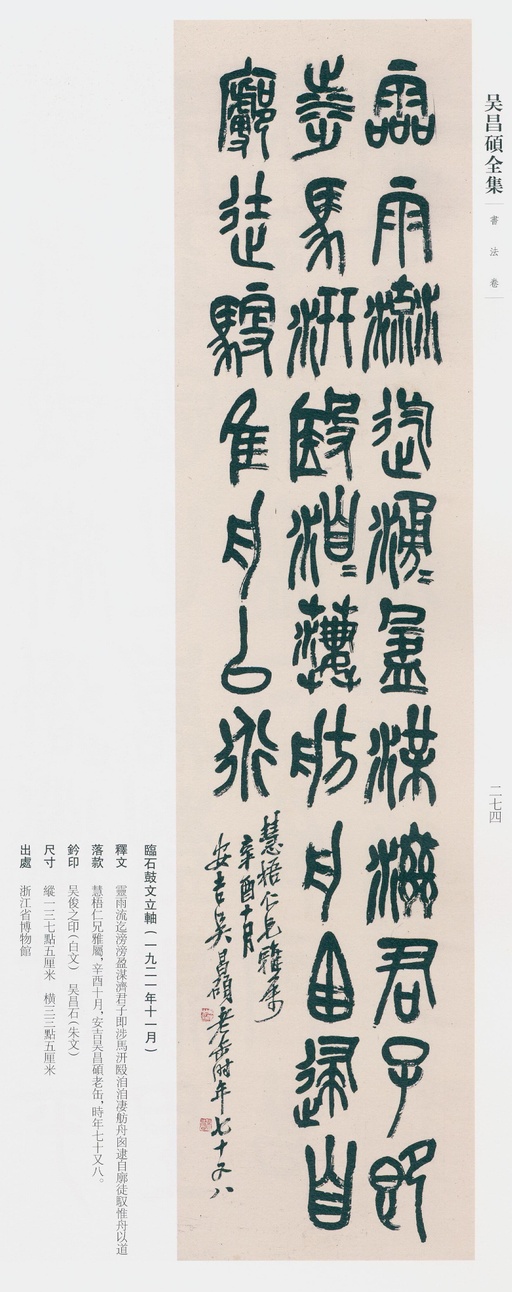 吴昌碩全集
書法卷
二七四
靈雨流迄滂=盈渫濟君子即
涉馬汧殹洎=淒舫舟囪逮自
廓徒馭惟舟以道
慧梧仁兄雅屬
辛酉十月
安吉吴昌碩老缶時年七十又八
臨石鼓文立軸（一九二一年十一月）
釋文 靈雨流迄滂滂盈渫濟君子即涉馬汧殹洎洎淒舫舟囪逮自廓徒馭惟舟以道
落款 慧梧仁兄雅屬，辛酉十月，安吉吴昌碩老缶，時年七十又八。
鈐印 吴俊之印（白文） 吴昌石（朱文）
尺寸 縱一三七點五厘米 橫三三點五厘米
出處 浙江省博物館